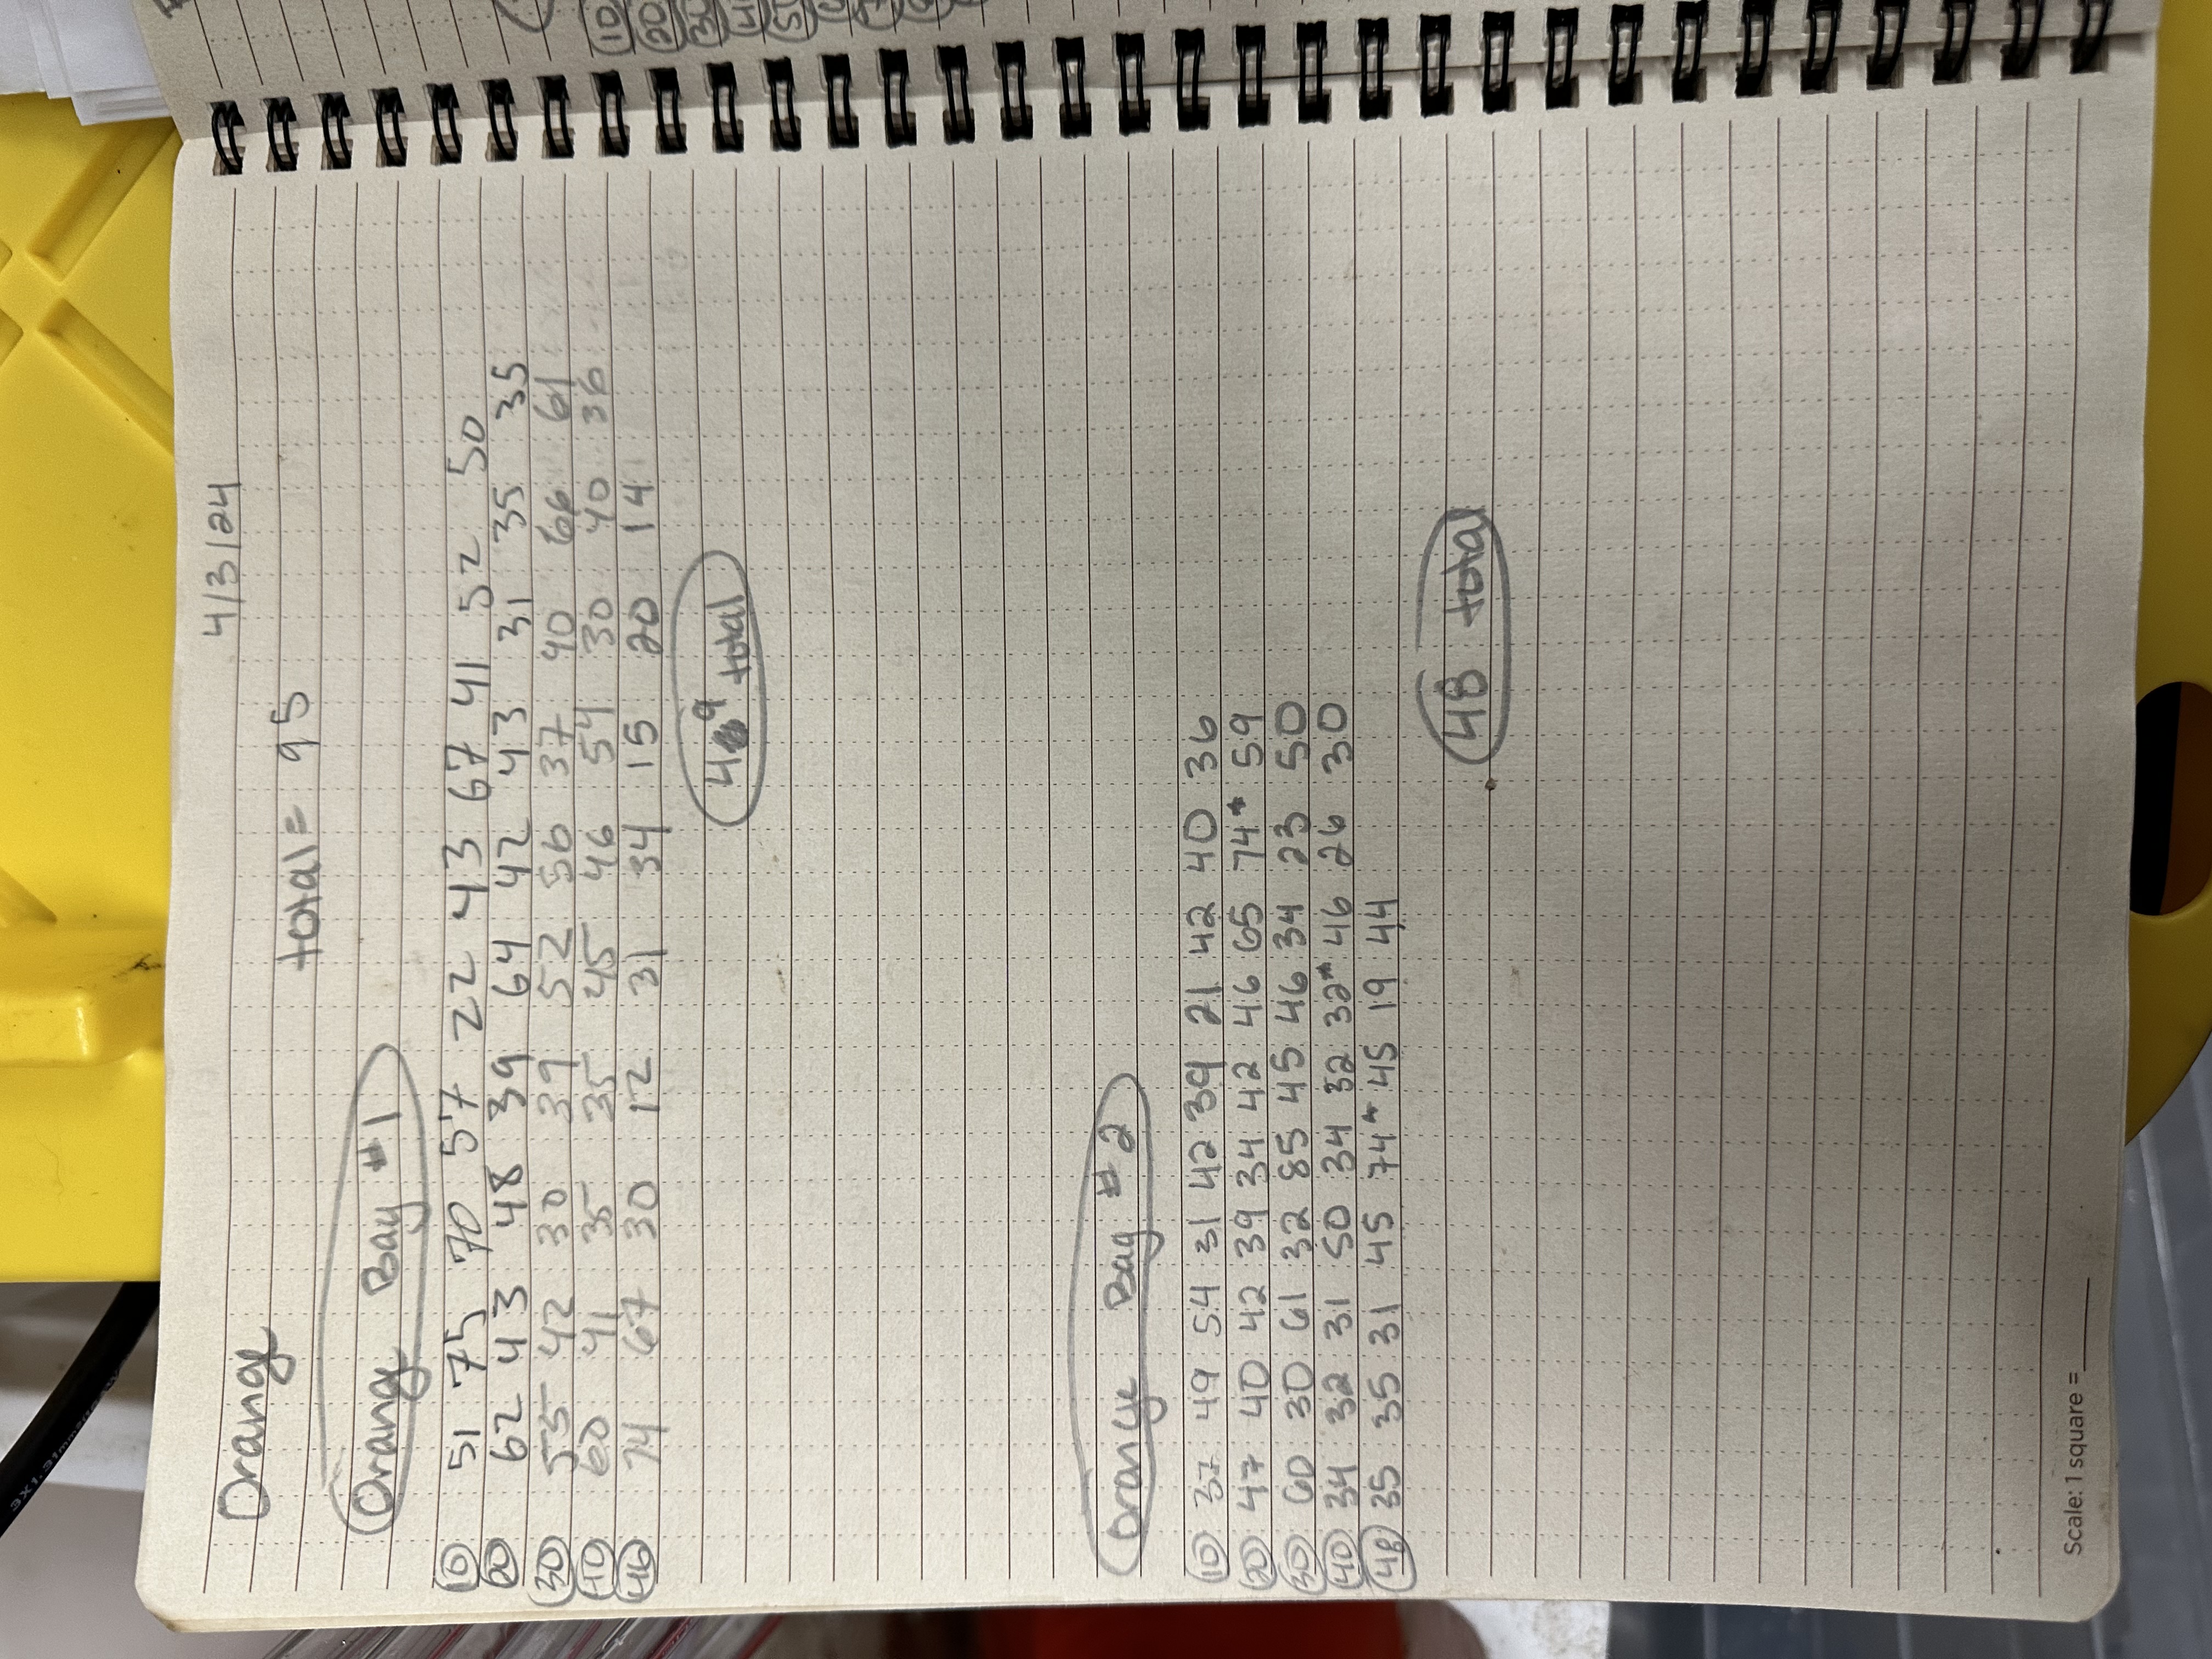 3X1.31mm
4/3/24
Orange
total= 95
Orange Bag #1
10 51 75 70 57 22 43 67 41 52 50
20 62 43 48 39 64 42 43 31 35 35
30 55 42 30 39 52 56 37 40 66 61
40 60 41 35 35 45 46 54 30 40 36
46 74 67 30 12 31 34 15 20 14
49 total
Orange Bag #2
10 37 49 54 31 42 39 21 42 40 36
20 47 40 42 39 34 42 46 65 74* 59
30 60 30 61 32 85 45 46 34 23 50
40 34 32 31 50 34 32 32* 46 26 30
48 35 35 31 45 74* 45 19 44
48 total
Scale: 1 square =______
10
20